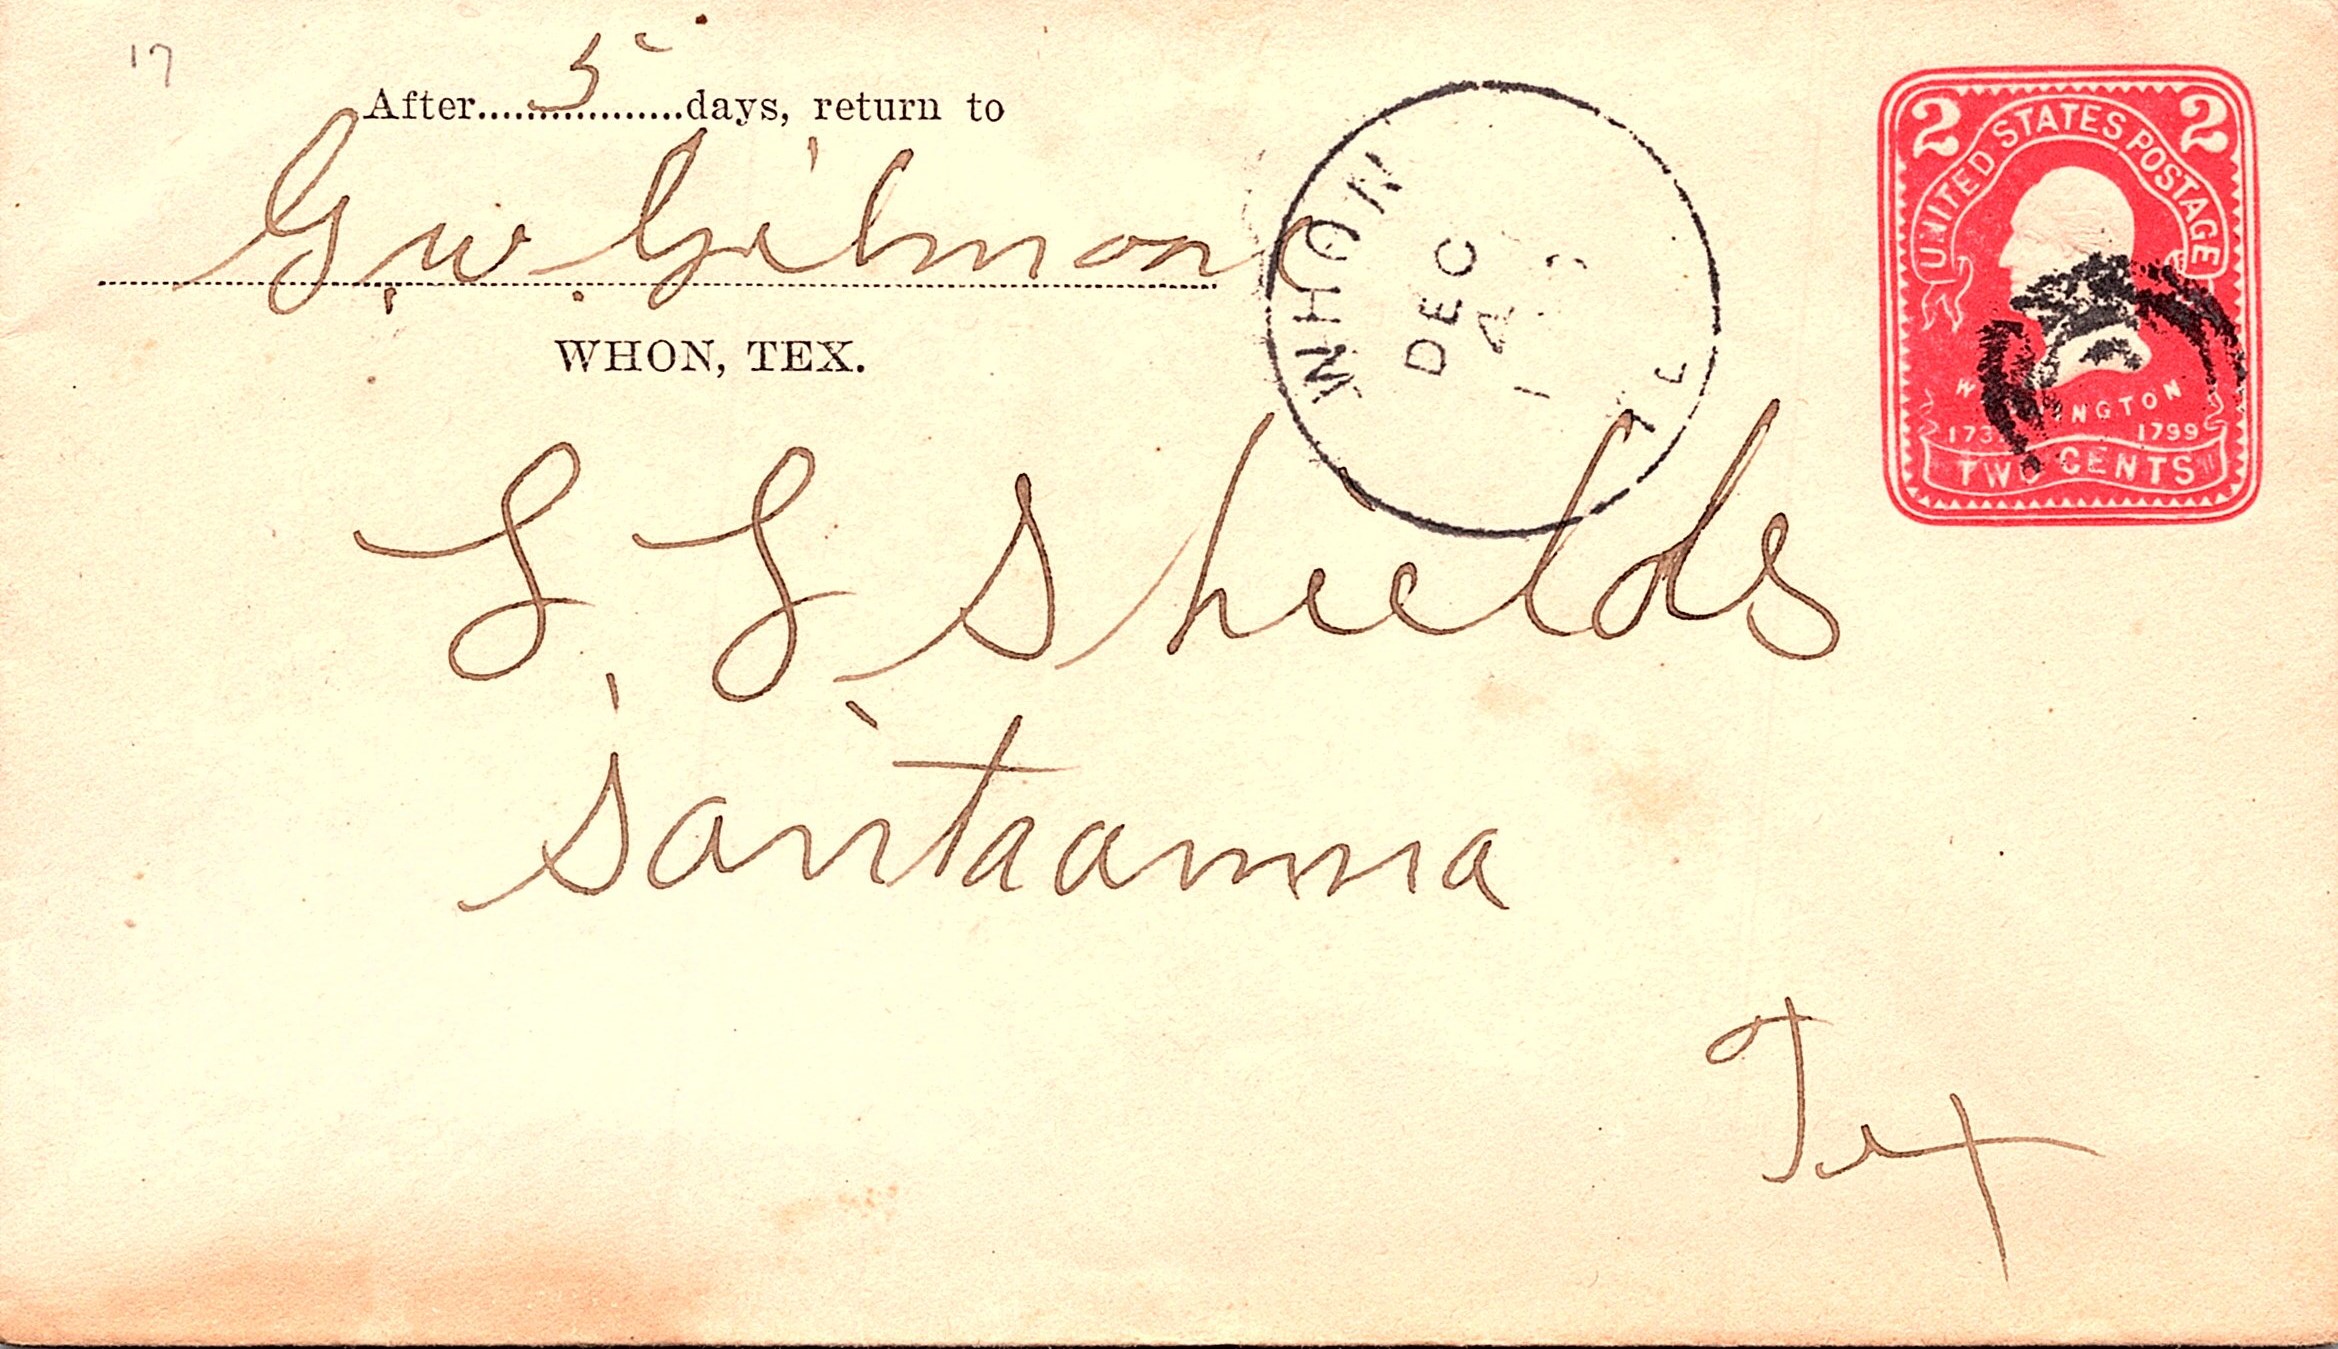 17
After 5 days, return to
G. W. Gilmore
WHON, TEX.
WHON
DEC
4
2 UNITED STATES POSTAGE 2
WASHINGTON
1732 1799
TWO CENTS
L. L. Shields
Santaanna
Tex